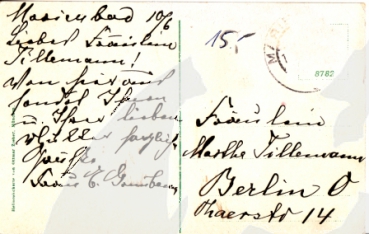 Marienbad 10/6
Liebes Fräulein
Tillemann!
Von hier aus
sendet Ihnen
u. Ihrer lieben
Mutter herzliche
Grüße
Frau E.
15.-
8782
Fräulein
Martha Tillemann
Berlin O
Thaerstr 14